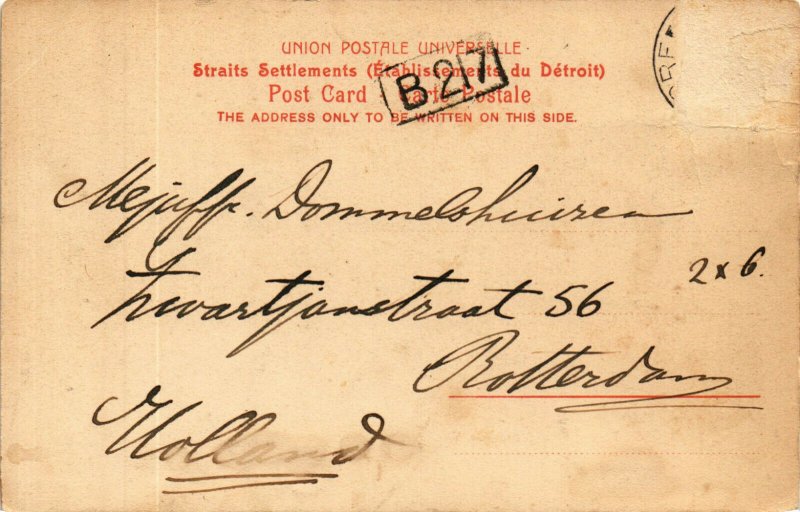 UNION POSTALE UNIVERSELLE.
Straits Settlements (Établissements du Détroit)
Post Card Carte Postale
B27
THE ADDRESS ONLY TO BE WRITTEN ON THIS SIDE.
Mejuffr. Dommelshuizen
Zwartjanstraat 56
2 x 6.
Rotterdam
Holland